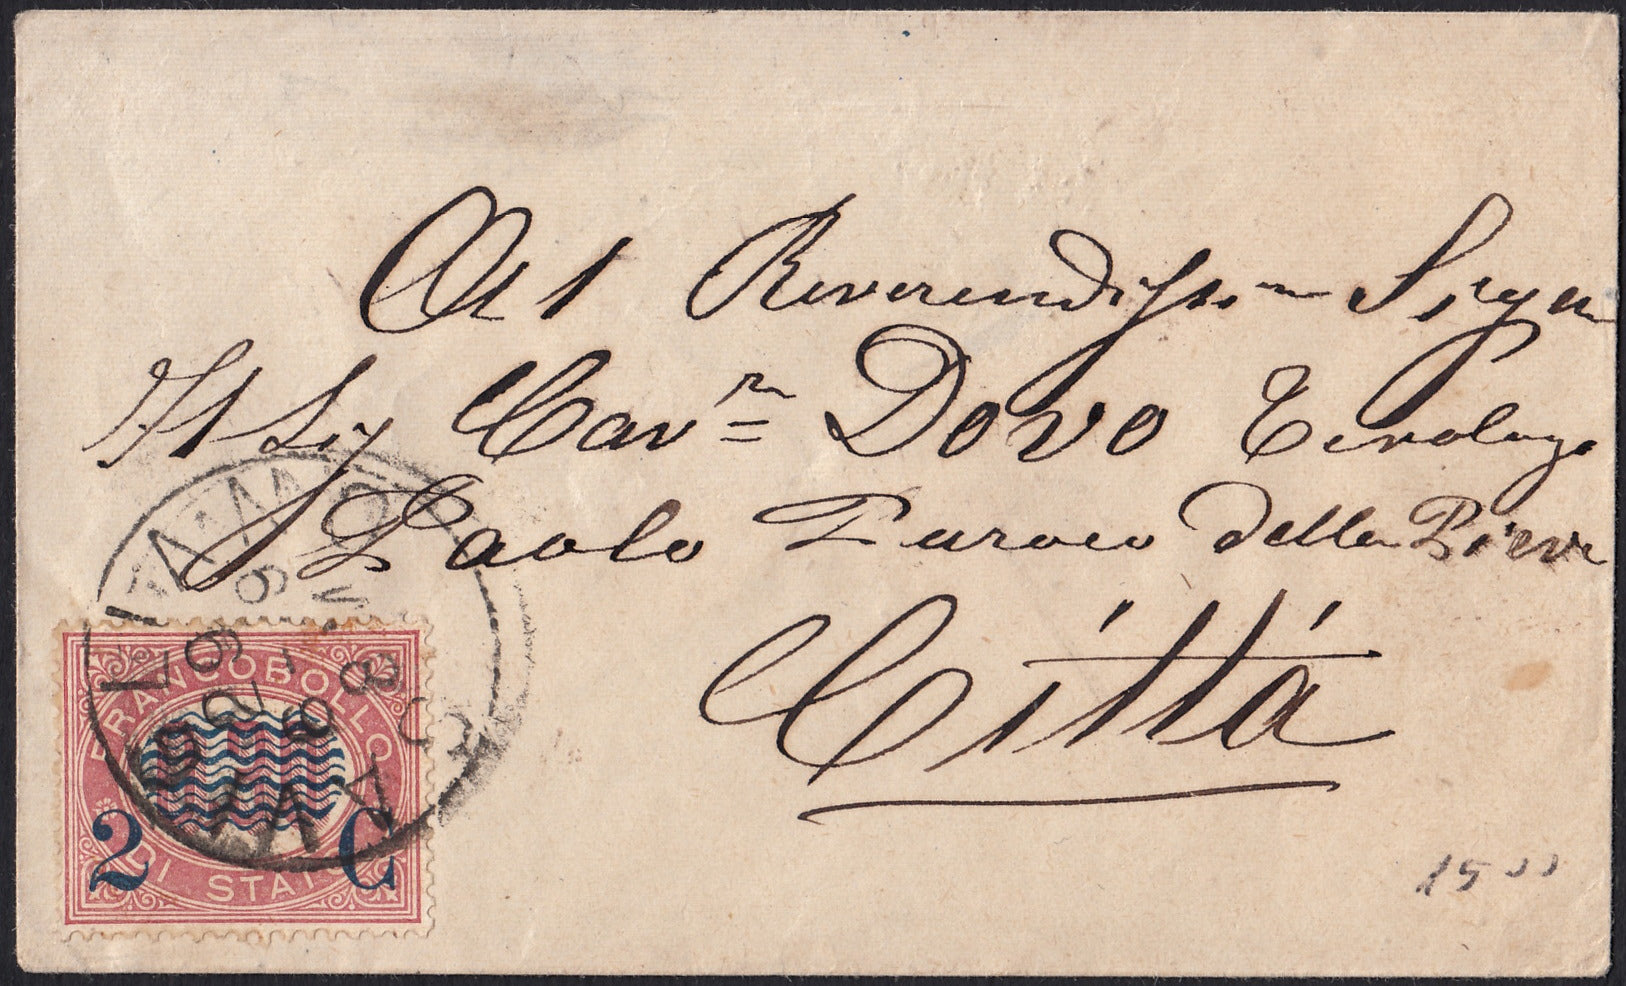 Al Reverendissimo Sign
Il Sig Cavre Dovo Teologo
Paolo Parroco della Pieve
Città
FRANCOBOLLO
DI STATO
2 C
15